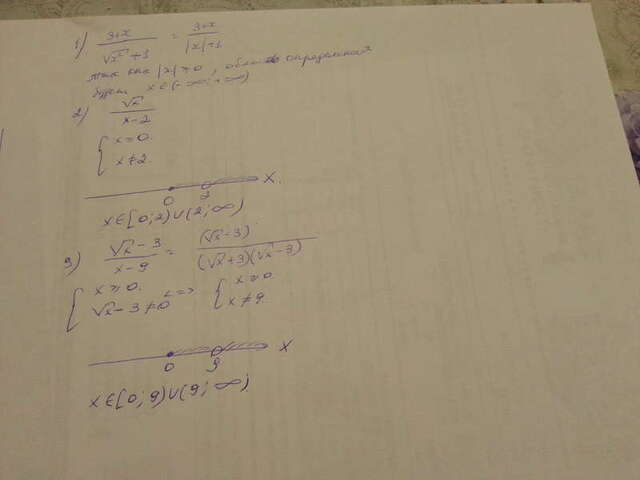 1) 3+x / √x² + 1 = 3+x / |x|+1
так как |x| ≥ 0, область определения
будет x ∈ (-∞; +∞)
2) √x / x-2
{ x ≥ 0.
x ≠ 2.
0 2 X.
x ∈ [0; 2) ∪ (2; ∞)
3) √x - 3 / x - 9 = (√x - 3) / (√x + 3)(√x - 3)
{ x ≥ 0. √x - 3 ≠ 0 <=> { x ≥ 0. x ≠ 9.
0 9 X
x ∈ [0; 9) ∪ (9; ∞)